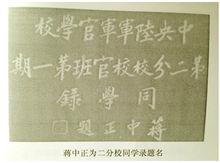 中央陸軍軍官學校
第二分校校官班第一期
同學錄
蔣中正題
蒋中正为二分校同学录题名